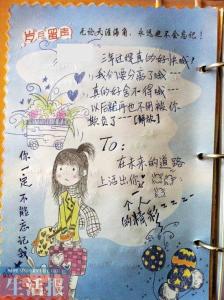 岁月留声
无论天涯海角，永远也不会忘记！
三年过得真的好快哦！
我们要分离了哦……
真的好舍不得哦……
以后就再也不用被你
欺负了……【解放】
To:
在未来的道路
上活出你
个人
的精彩
你一定不能忘记我
生活报